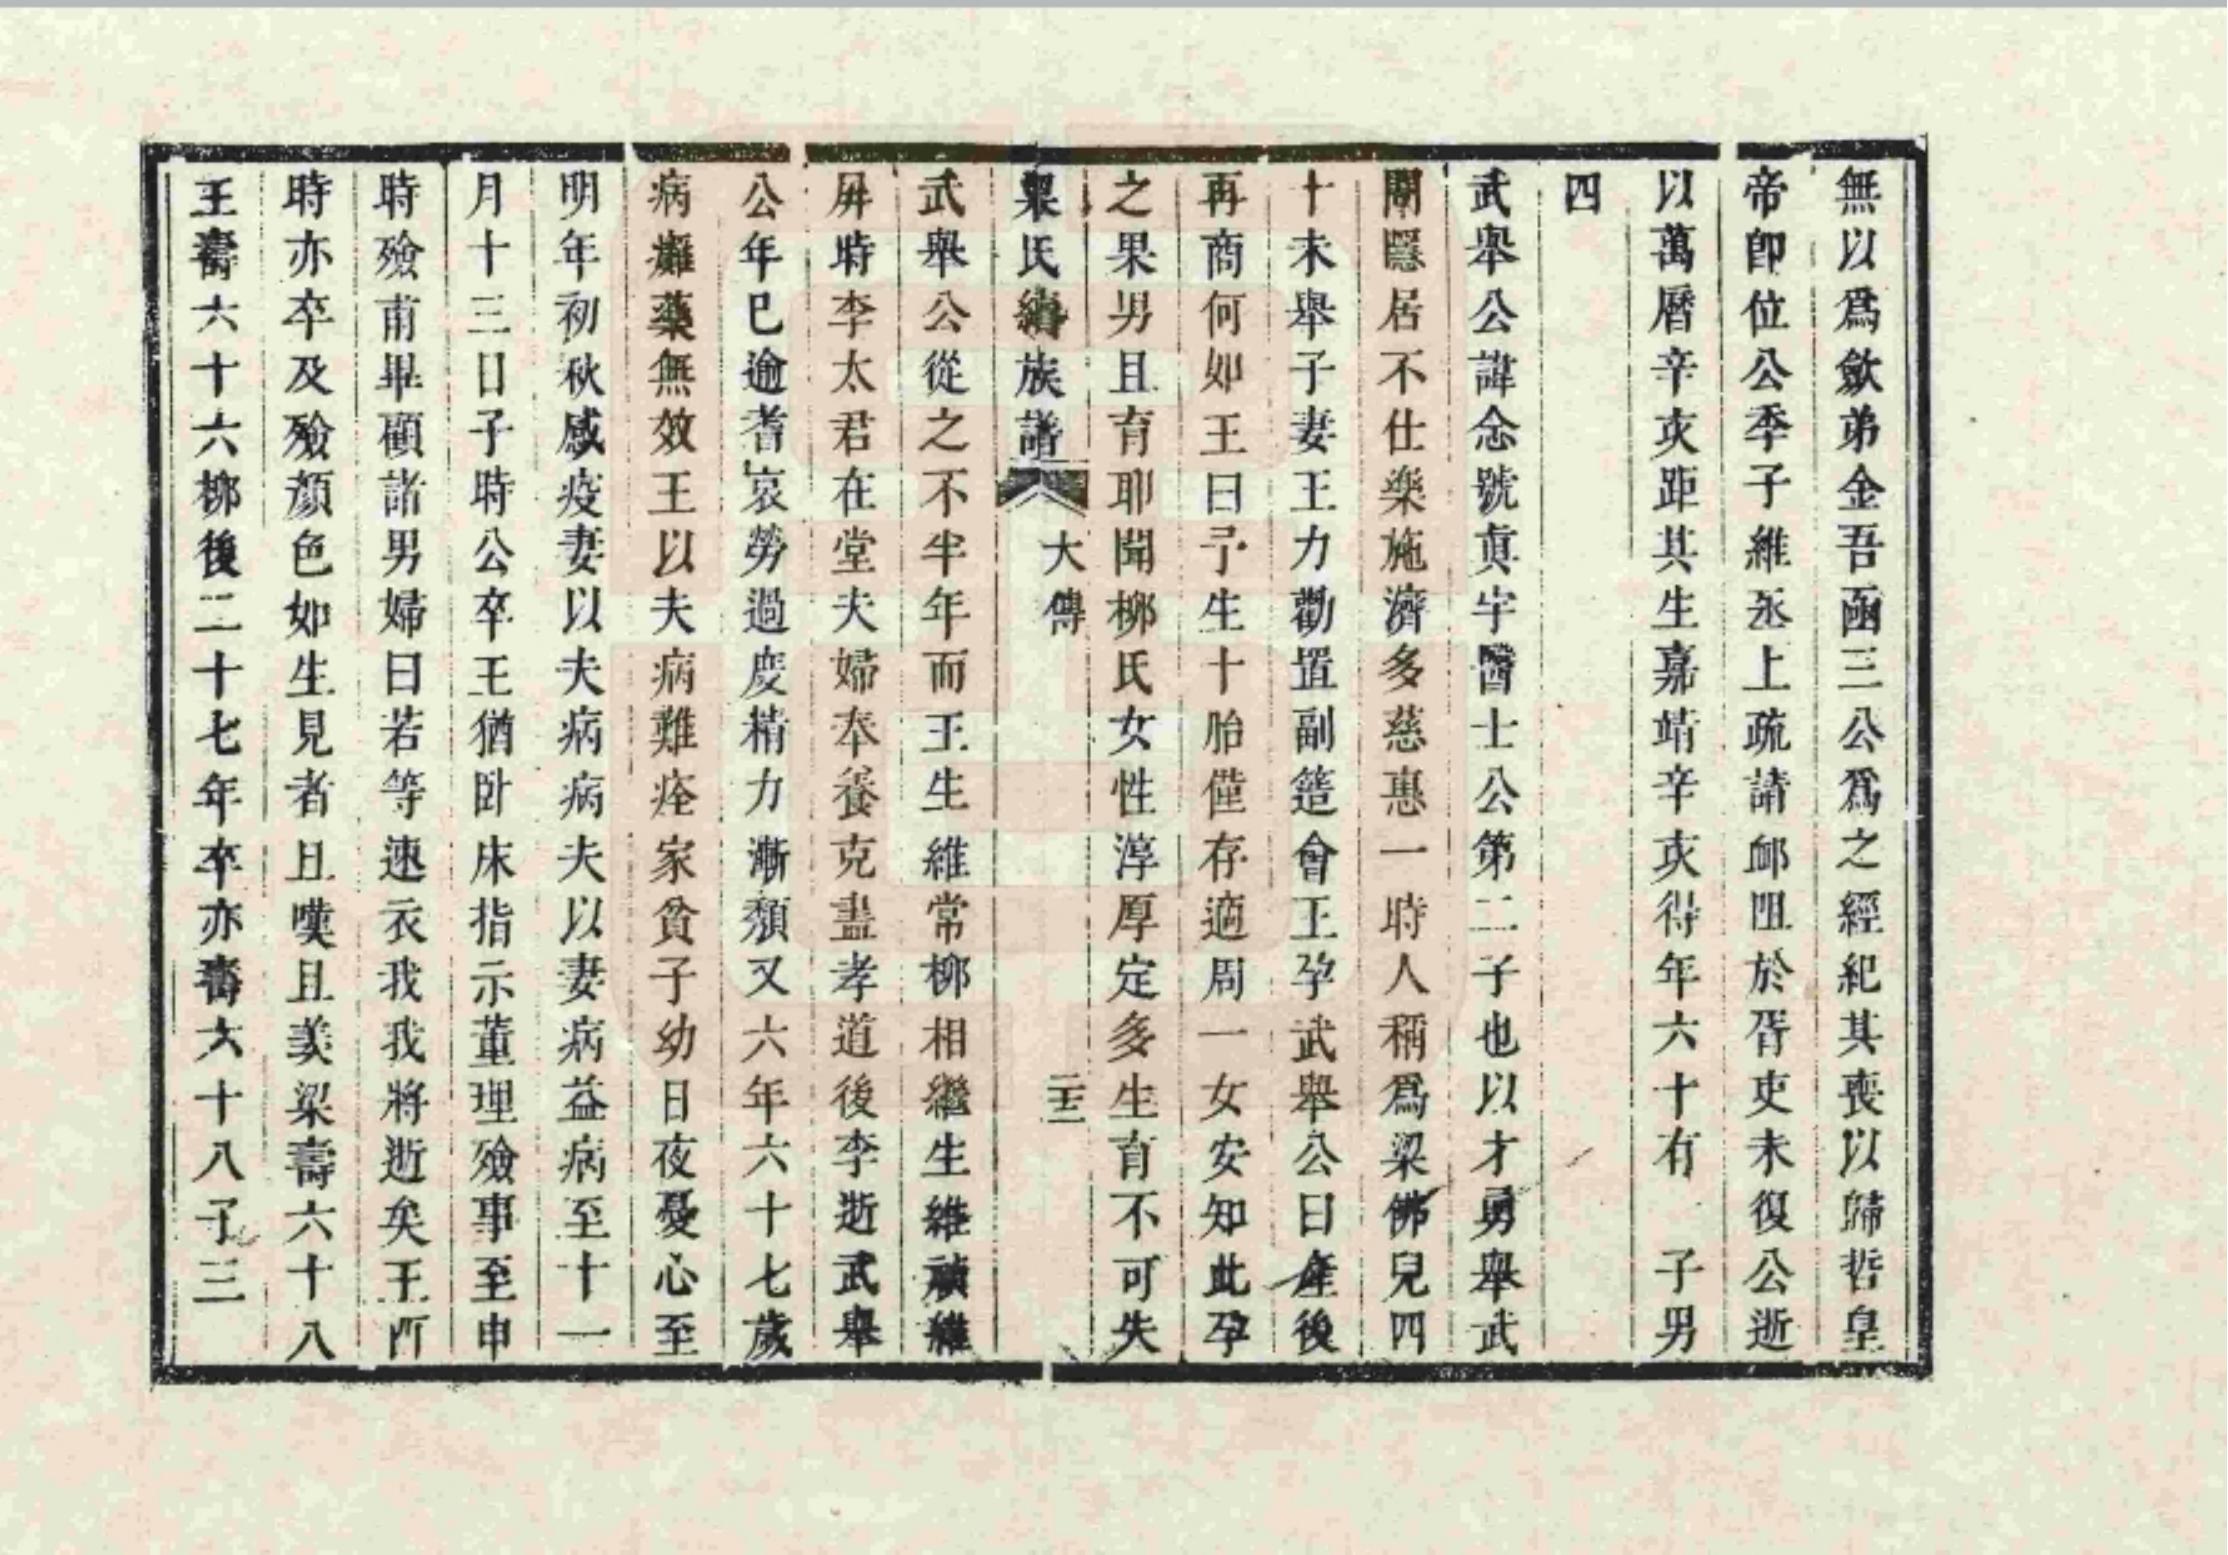 無以爲歛弟金吾函三公爲之經紀其喪以歸哲皇
帝卽位公季子維丞上疏請䘏阻於胥吏未復公逝
以萬曆辛亥距其生嘉靖辛亥得年六十有 子男
四
武舉公諱念號眞宇醫士公第二子也以才勇舉武
闈隱居不仕樂施濟多慈惠一時人稱爲梁佛兒四
十未舉子妻王力勸置副簉會王孕武舉公曰產後
再商何如王曰予生十胎僅存適周一女安知此孕
之果男且育耶聞柳氏女性淳厚定多生育不可失
梁氏續族譜 大傳 二十三
武舉公從之不半年而王生維常柳相繼生維禎維
屏時李太君在堂夫婦奉養克盡孝道後李逝武舉
公年巳逾耆哀勞過度精力漸頹又六年六十七歲
病癱藥無效王以夫病難痊家貧子幼日夜憂心至
明年初秋感疫妻以夫病病夫以妻病益病至十一
月十三日子時公卒王猶臥床指示董理殮事至申
時殮甫畢顧諸男婦曰若等速衣我我將逝矣王酉
時亦卒及殮顏色如生見者且嘆且羙梁壽六十八
王壽六十六柳後二十七年卒亦壽六十八子三